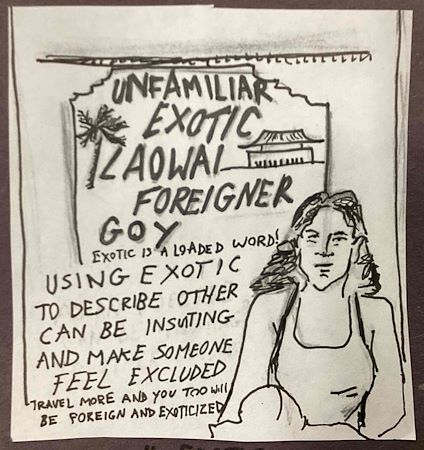 UNFAMILIAR
EXOTIC
LAOWAI
FOREIGNER
GOY
EXOTIC IS A LOADED WORD!
USING EXOTIC
TO DESCRIBE OTHER
CAN BE INSUTING
AND MAKE SOMEONE
FEEL EXCLUDED
TRAVEL MORE AND YOU TOO WILL
BE FOREIGN AND EXOTICIZED